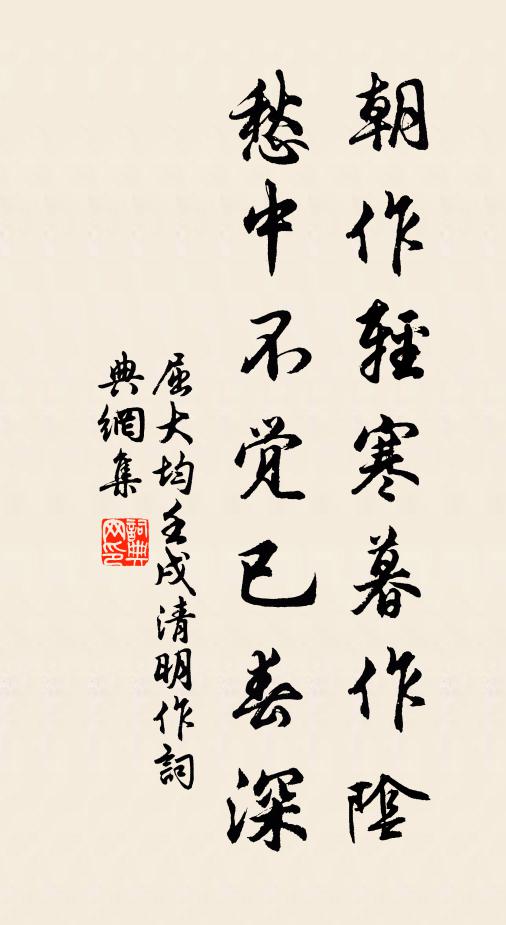 朝作輕寒暮作陰
愁中不覺已春深
屈大均壬戌清明作詞
典網集
詞典
网印